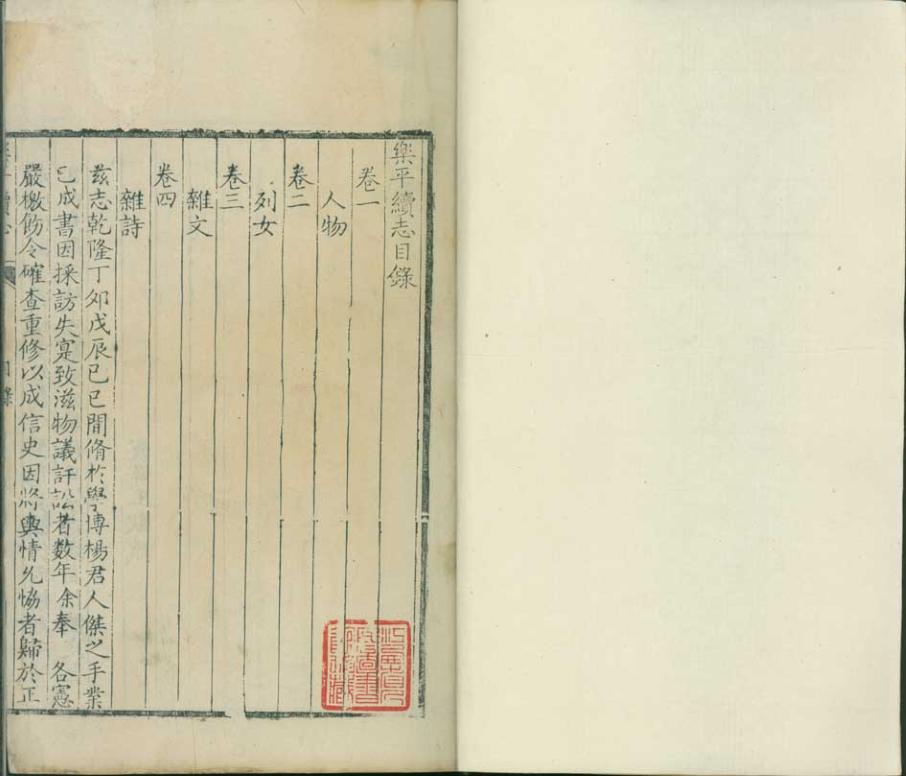 樂平續志目錄
卷一
人物
卷二
列女
卷三
雜文
卷四
雜詩
兹志乾隆丁夘戊辰己巳間脩於學博楊君人傑之手業
已成書因採訪失寔致滋物議訐訟者数年余奉 各憲
嚴檄飭令確查重修以成信史因將輿情允恊者歸於正